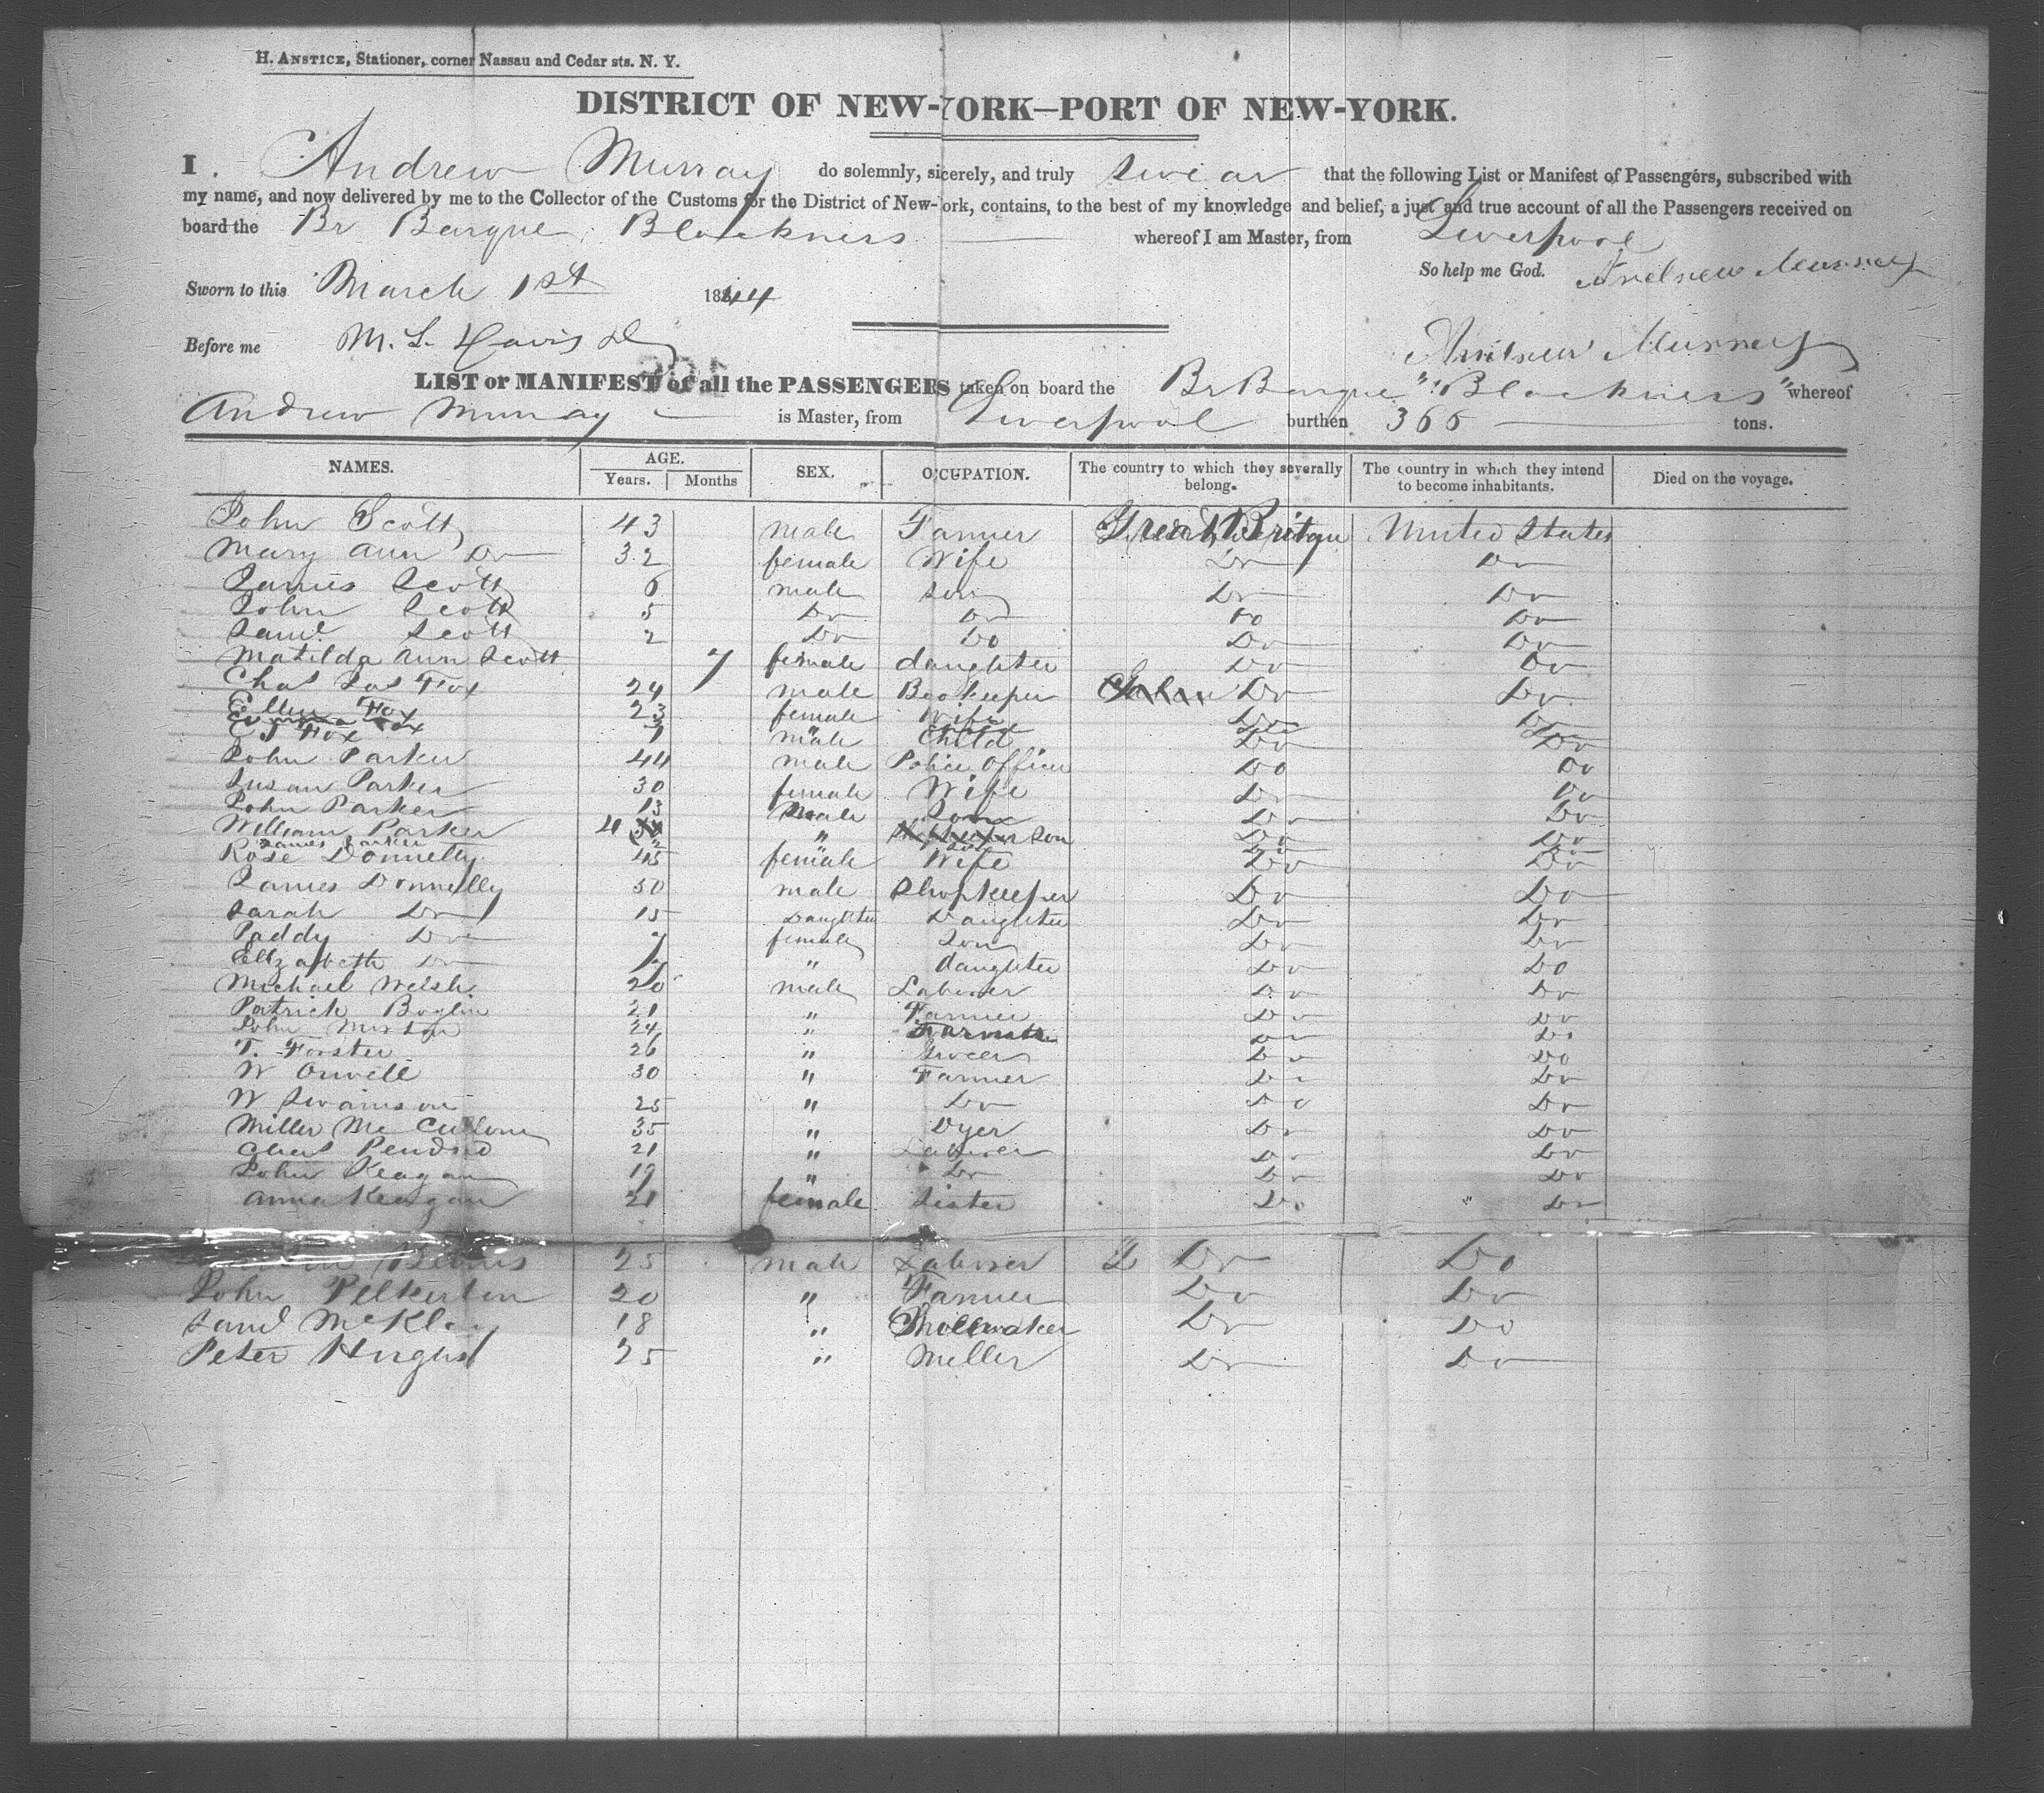 H. ANSTICE, Stationer, corner Nassau and Cedar sts. N. Y.
DISTRICT OF NEW-YORK—PORT OF NEW-YORK.
I. Andrew Murray do solemnly, sicerely, and truly swear that the following List or Manifest of Passengers, subscribed with
my name, and now delivered by me to the Collector of the Customs for the District of New-York, contains, to the best of my knowledge and belief, a just and true account of all the Passengers received on
board the Br Barque Blackness whereof I am Master, from Liverpool
So help me God. Andrew Murray
Sworn to this March 1st 1844
Before me M. L. Davis
Andrew Murray
LIST or MANIFEST of all the PASSENGERS taken on board the Br Barque "Blackness" whereof
Andrew Murray is Master, from Liverpool burthen 365 tons.
NAMES. AGE. Years. Months SEX. OCCUPATION. The country to which they severally belong. The country in which they intend to become inhabitants. Died on the voyage.
John Scott 43 male Farmer Great Britain United States
Mary Ann Do 32 female Wife Do Do
James Scott 6 male son Do Do
John Scott 5 Do Do Do Do
Saml Scott 2 Do Do Do Do
Matilda Ann Scott 7 female daughter Do Do
Chas Jas Fox 24 male Bookeeper Do Do
Ellen Fox 23 female Wife Do Do
E J Fox 1 male Child Do Do
John Parker 44 male Police Officer Do Do
Susan Parker 30 female Wife Do Do
John Parker 13 male Son Do Do
William Parker 4 " Son Do Do
James Parker 2 " Son Do Do
Rose Donnelly 45 female Wife Do Do
James Donnelly 50 male Shopkeeper Do Do
Sarah Do 15 Daughter Daughter Do Do
Paddy Do 7 female Son Do Do
Ellzabeth Do " daughter Do Do
Michael Welsh 20 male Laborer Do Do
Patrick Boylin 21 " Farmer Do Do
John 24 " Farmer Do Do
T. Forster 26 " Grocer Do Do
W Orwell 30 " Farmer Do Do
W Swainson 25 " Do Do Do
Miller Mc Cullom 35 " Dyer Do Do
Chas 21 " Laborer Do Do
John Keagan 19 " Do Do Do
Anna Keagan 21 female Sister Do " Do
25 male Laborer Do Do
John Pilkerton 20 " Farmer Do Do
Saml 18 " Do Do
Peter 25 " Miller Do Do